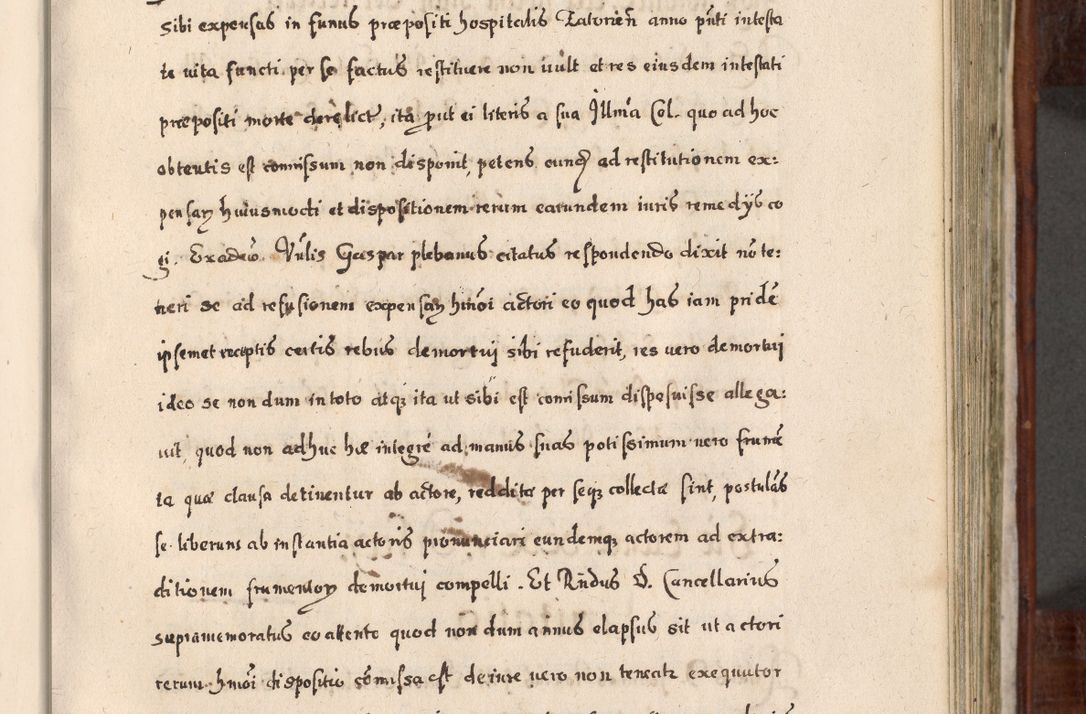 sibi expensas in funus præpositi hospitalis Zatorieñ anno pñti intesta
te vita functi per se factus restituere non uult et res eiusdem intestati
præpositi morte derelictę, ita put ei literis a sua Illma Cel. quo ad hoc
obtentis est comissum non disponit, petens eundẽ ad restitutionem ex:
pensarz huiusmodi et dispositionem rerum earundem iuris remedÿs co
gi. Exaduo Vnlis Gaspar plebanus citatus respondendo dixit no te:
neri se ad refusionem expensarz hmoi actori eo quod has iam pridẽ
ipsemet receptis certis rebus demortuj sibi refuderit, res vero demortuj
ideo se nondum in toto atqz ita ut sibi est comissum disposuisse allega:
uit, quod non adhuc hæ integrè ad manus suas potissimum vero frumẽ
ta quæ clausa detinentur ab actore, reddita per seqz collecta sint, postulãs
se liberum ab instantia actoris pronunciari eundemqz actorem ad extra:
ditionem frumentorz demortuj compelli. Et Rñdus D. Cancellarius
supramemoratus eo attento quod nondum annus elapsus sit ut actori
rerum hmoi dispositio cõmissa est de iure vero non teneatr exequutor